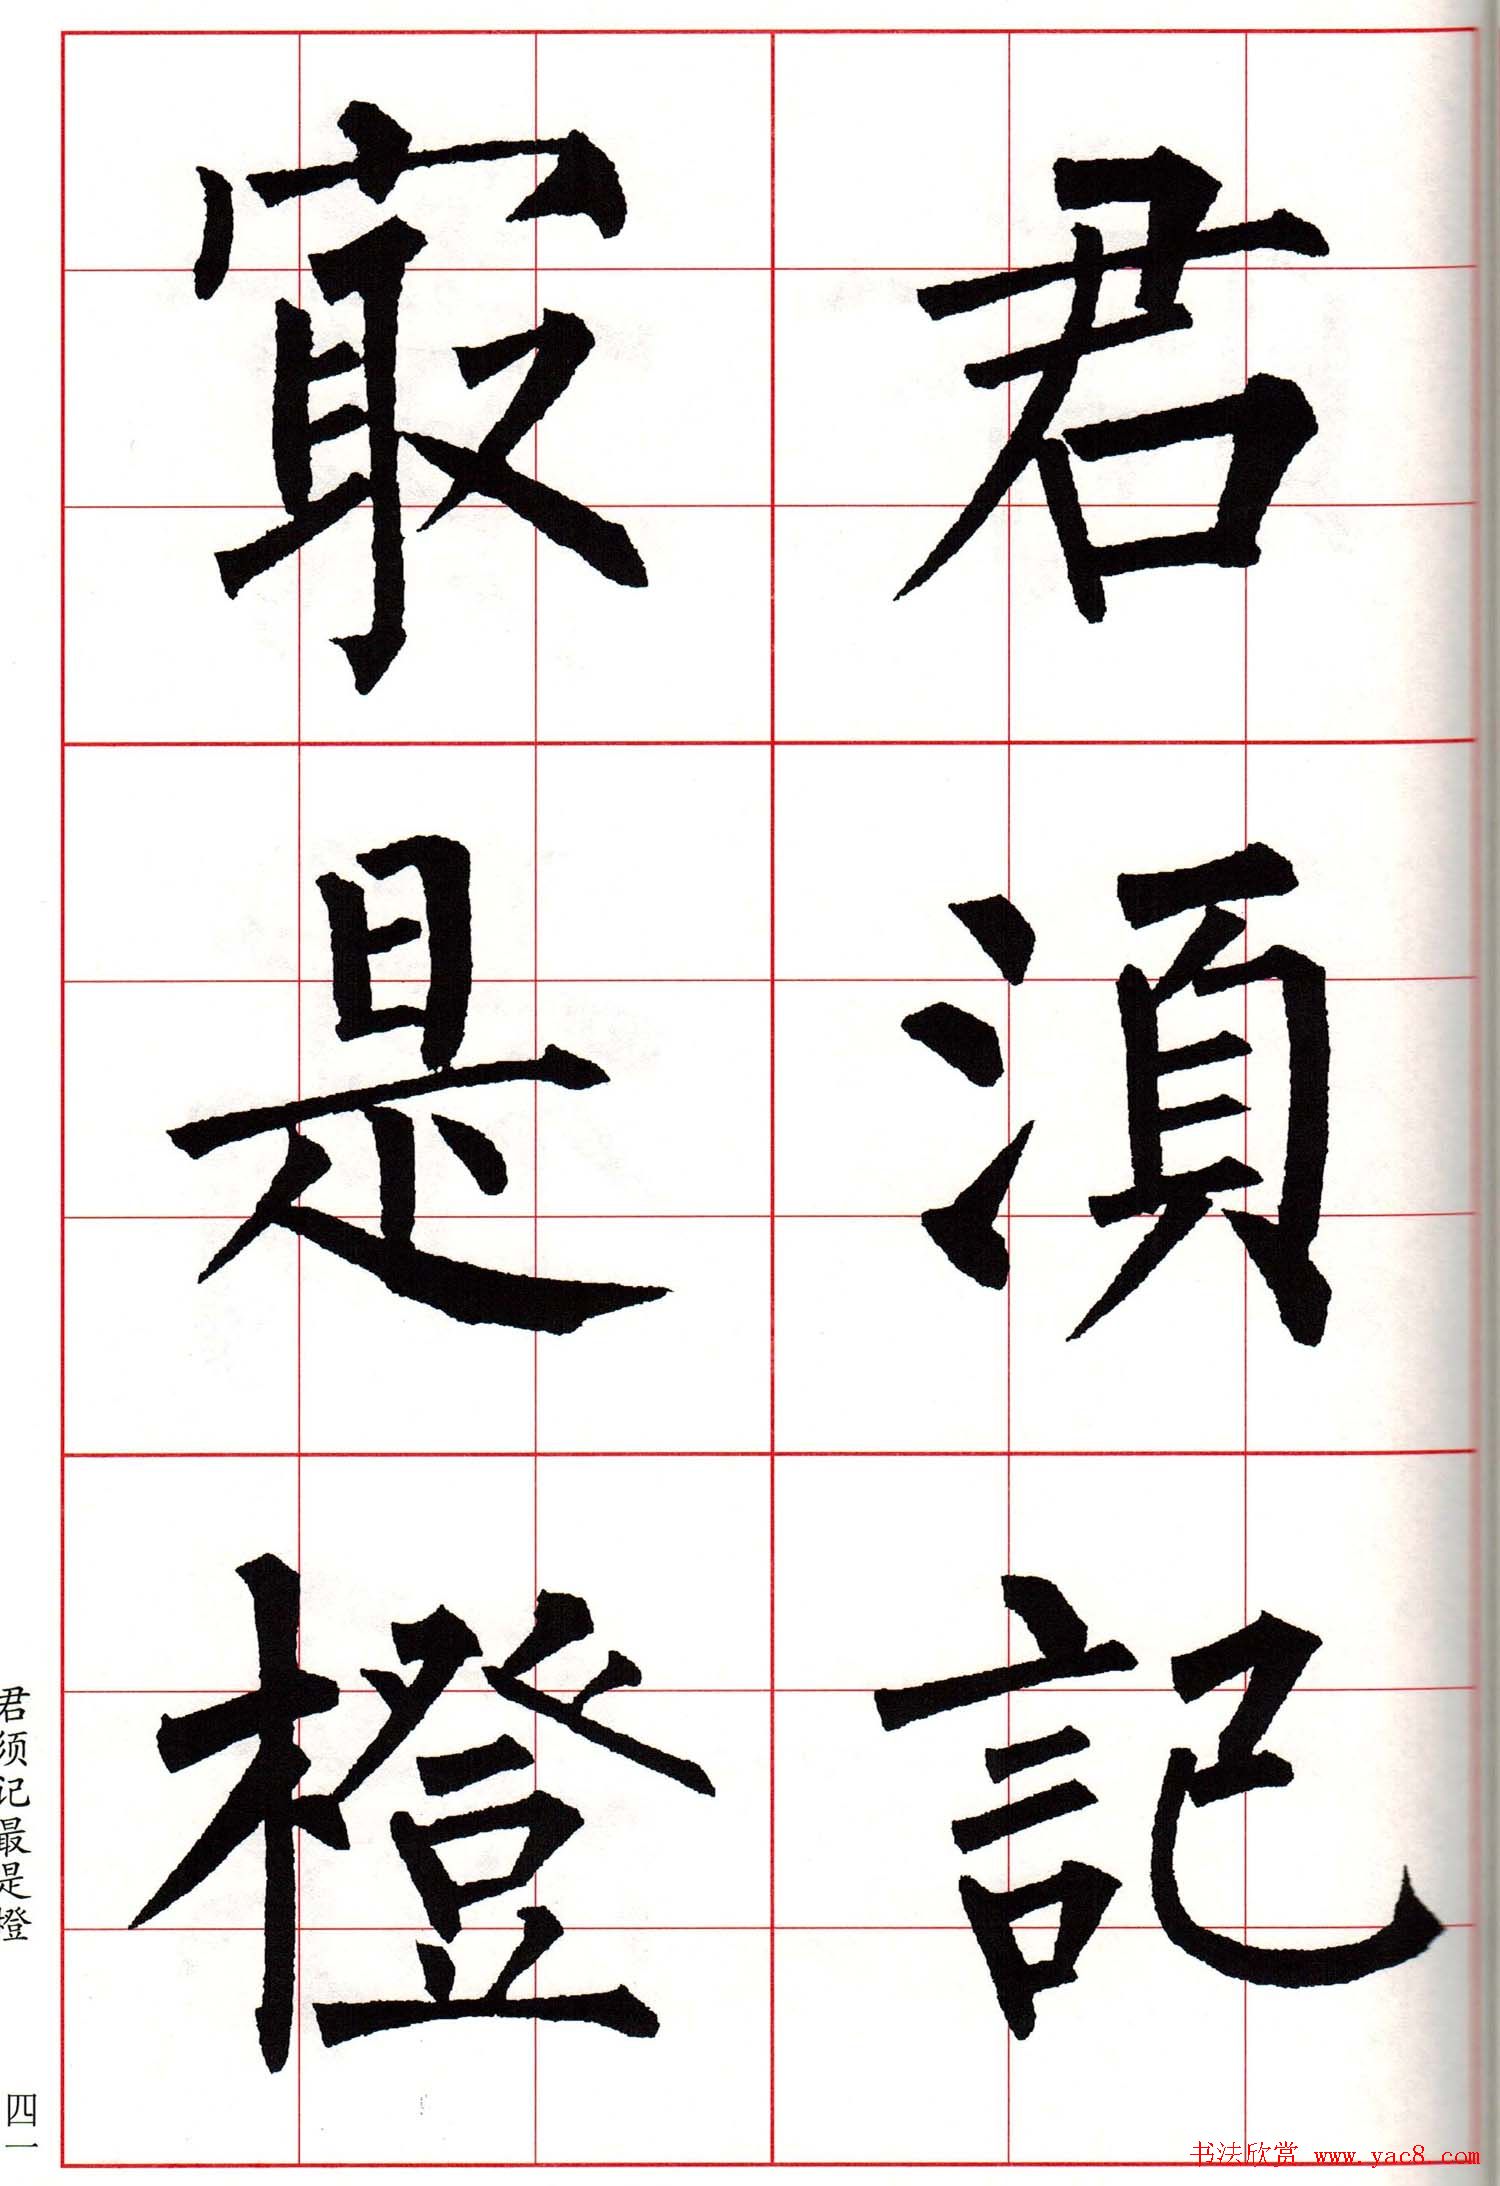 君須記
冣是橙
君须记最是橙
四一
书法欣赏 www.yac8.com